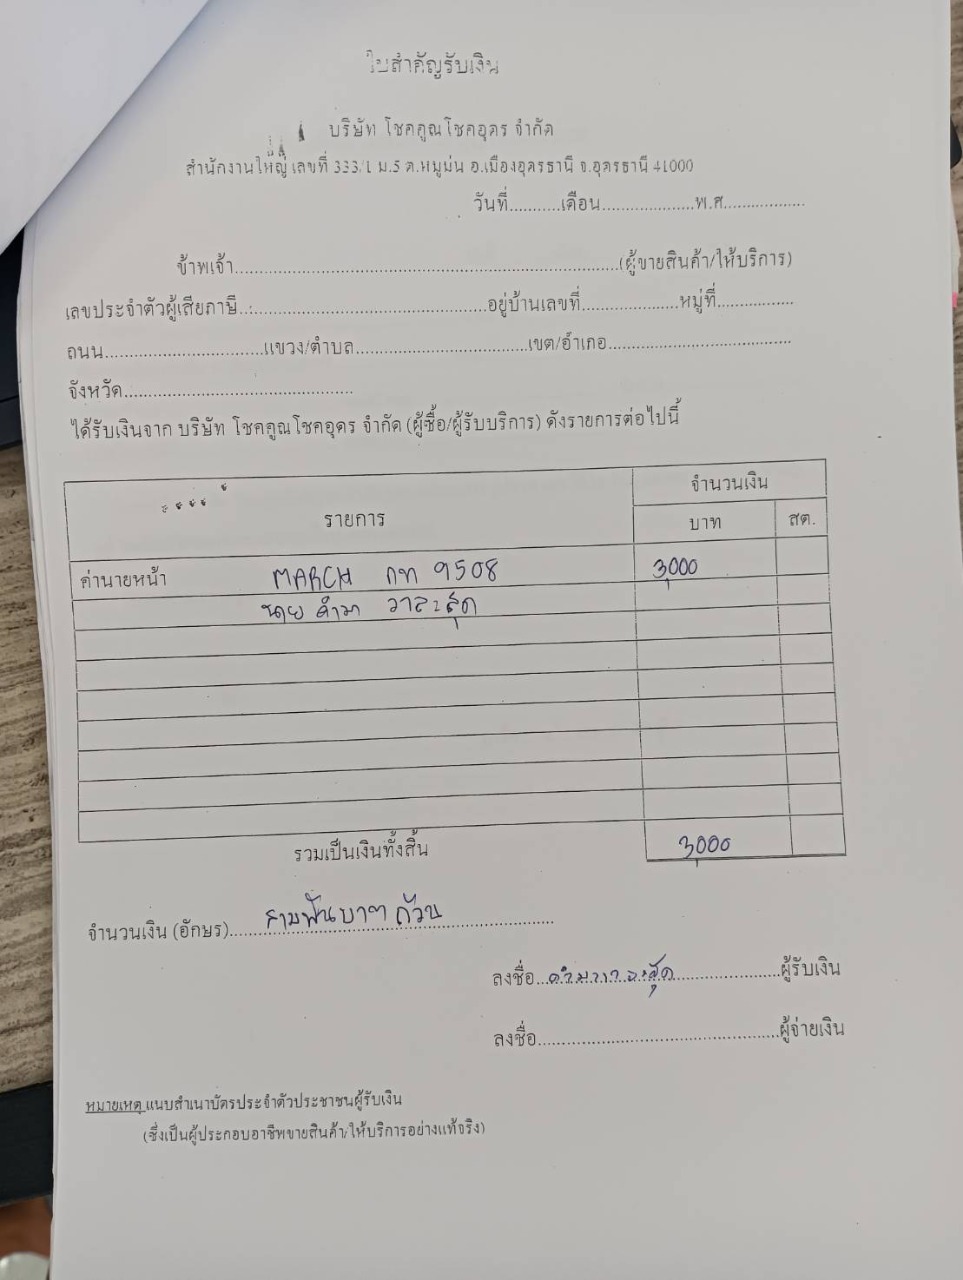 ใบสำคัญรับเงิน
บริษัท โชคคูณโชคอุดร จำกัด
สำนักงานใหญ่ เลขที่ 333/1 ม.5 ต.หมูม่น อ.เมืองอุดรธานี จ.อุดรธานี 41000
วันที่...........เดือน.....................พ.ศ..................
ข้าพเจ้า.......................................................................................(ผู้ขายสินค้า/ให้บริการ)
เลขประจำตัวผู้เสียภาษี.........................................................อยู่บ้านเลขที่......................หมู่ที่.................
ถนน....................................แขวง/ตำบล.......................................เขต/อำเภอ.........................................
จังหวัด....................................................
ได้รับเงินจาก บริษัท โชคคูณโชคอุดร จำกัด (ผู้ซื้อ/ผู้รับบริการ) ดังรายการต่อไปนี้
รายการ จำนวนเงิน
บาท สต.
ค่านายหน้า MARCH กท 9508 3,000
นาย คำมา วาละสุด
รวมเป็นเงินทั้งสิ้น 3,000
จำนวนเงิน (อักษร) สามพันบาทถ้วน
ลงชื่อ คำมา วาละสุด ผู้รับเงิน
ลงชื่อ.......................................................ผู้จ่ายเงิน
หมายเหตุ แนบสำเนาบัตรประจำตัวประชาชนผู้รับเงิน
(ซึ่งเป็นผู้ประกอบอาชีพขายสินค้า/ให้บริการอย่างแท้จริง)